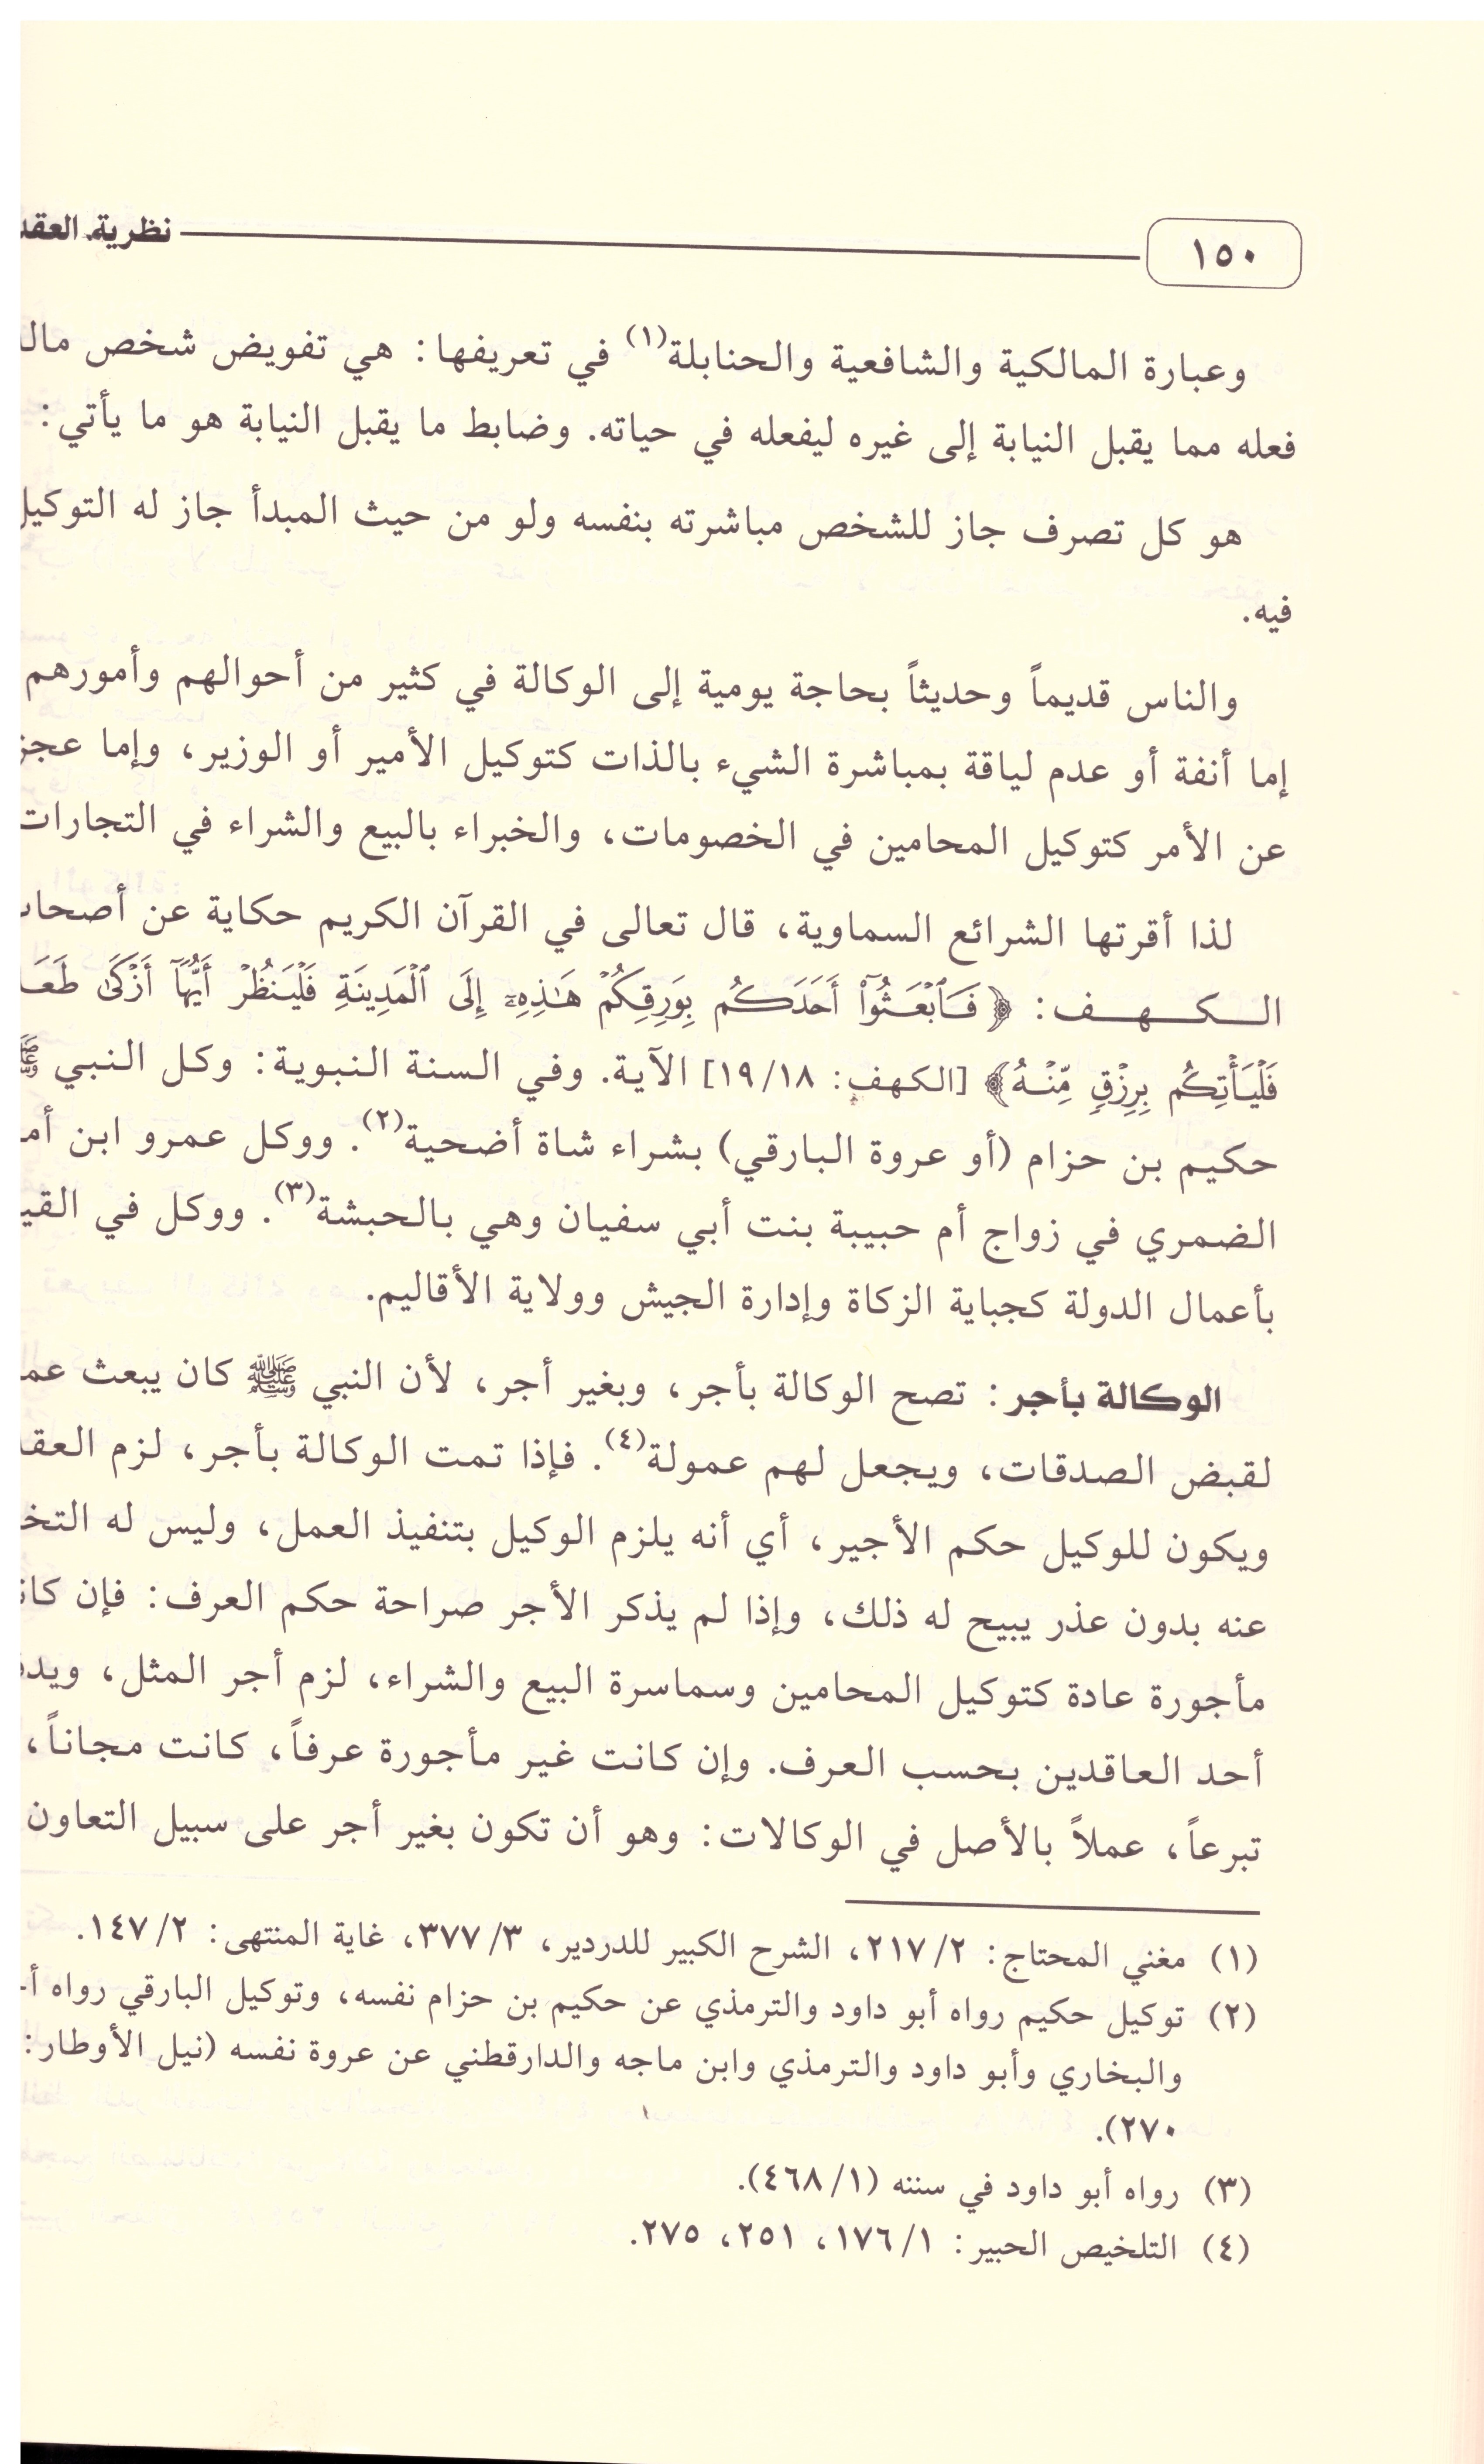 ١٥٠ نظرية العقد
وعبارة المالكية والشافعية والحنابلة(١) في تعريفها: هي تفويض شخص
فعله مما يقبل النيابة إلى غيره ليفعله في حياته. وضابط ما يقبل النيابة هو ما يأتي:
هو كل تصرف جاز للشخص مباشرته بنفسه ولو من حيث المبدأ جاز له التوكيل
فيه.
والناس قديماً وحديثاً بحاجة يومية إلى الوكالة في كثير من أحوالهم وأمورهم
إما أنفة أو عدم لياقة بمباشرة الشيء بالذات كتوكيل الأمير أو الوزير، وإما عجز
عن الأمر كتوكيل المحامين في الخصومات، والخبراء بالبيع والشراء في التجارات
لذا أقرتها الشرائع السماوية، قال تعالى في القرآن الكريم حكاية عن
الكهف: ﴿فَٱبْعَثُوٓا۟ أَحَدَكُم بِوَرِقِكُمْ هَٰذِهِۦٓ إِلَى ٱلْمَدِينَةِ فَلْيَنظُرْ أَيُّهَآ أَزْكَىٰ
فَلْيَأْتِكُم بِرِزْقٍ مِّنْهُ﴾ [الكهف: ١٩/١٨] الآية. وفي السنة النبوية: وكل النبي ﷺ
حكيم بن حزام (أو عروة البارقي) بشراء شاة أضحية(٢). ووكل عمرو ابن
الضمري في زواج أم حبيبة بنت أبي سفيان وهي بالحبشة(٣). ووكل في
بأعمال الدولة كجباية الزكاة وإدارة الجيش وولاية الأقاليم.
الوكالة بأجر: تصح الوكالة بأجر، وبغير أجر، لأن النبي ﷺ كان يبعث
لقبض الصدقات، ويجعل لهم عمولة(٤). فإذا تمت الوكالة بأجر، لزم العقد
ويكون للوكيل حكم الأجير، أي أنه يلزم الوكيل بتنفيذ العمل، وليس له
عنه بدون عذر يبيح له ذلك، وإذا لم يذكر الأجر صراحة حكم العرف: فإن
مأجورة عادة كتوكيل المحامين وسماسرة البيع والشراء، لزم أجر المثل،
أحد العاقدين بحسب العرف. وإن كانت غير مأجورة عرفاً، كانت مجاناً،
تبرعاً، عملاً بالأصل في الوكالات: وهو أن تكون بغير أجر على سبيل التعاون
(١) مغني المحتاج: ٢١٧/٢، الشرح الكبير للدردير، ٣٧٧/٣، غاية المنتهى: ١٤٧/٢.
(٢) توكيل حكيم رواه أبو داود والترمذي عن حكيم بن حزام نفسه، وتوكيل البارقي رواه
والبخاري وأبو داود والترمذي وابن ماجه والدارقطني عن عروة نفسه (نيل الأوطار:
٢٧٠).
(٣) رواه أبو داود في سننه (٤٦٨/١).
(٤) التلخيص الحبير: ١٧٦/١، ٢٥١، ٢٧٥.